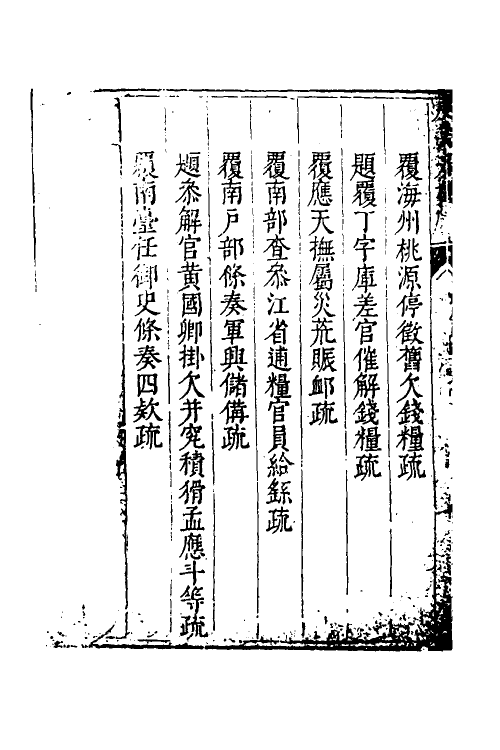 覆海州桃源停徵舊欠錢糧疏
題覆丁字庫差官催解錢糧疏
覆應天撫屬災荒賑䘏疏
覆南部查叅江省逋糧官員給繇疏
覆南戶部條奏軍興儲偹疏
題叅解官黃國卿掛欠并究積猾孟應斗等疏
覆南臺任御史條奏四欵疏